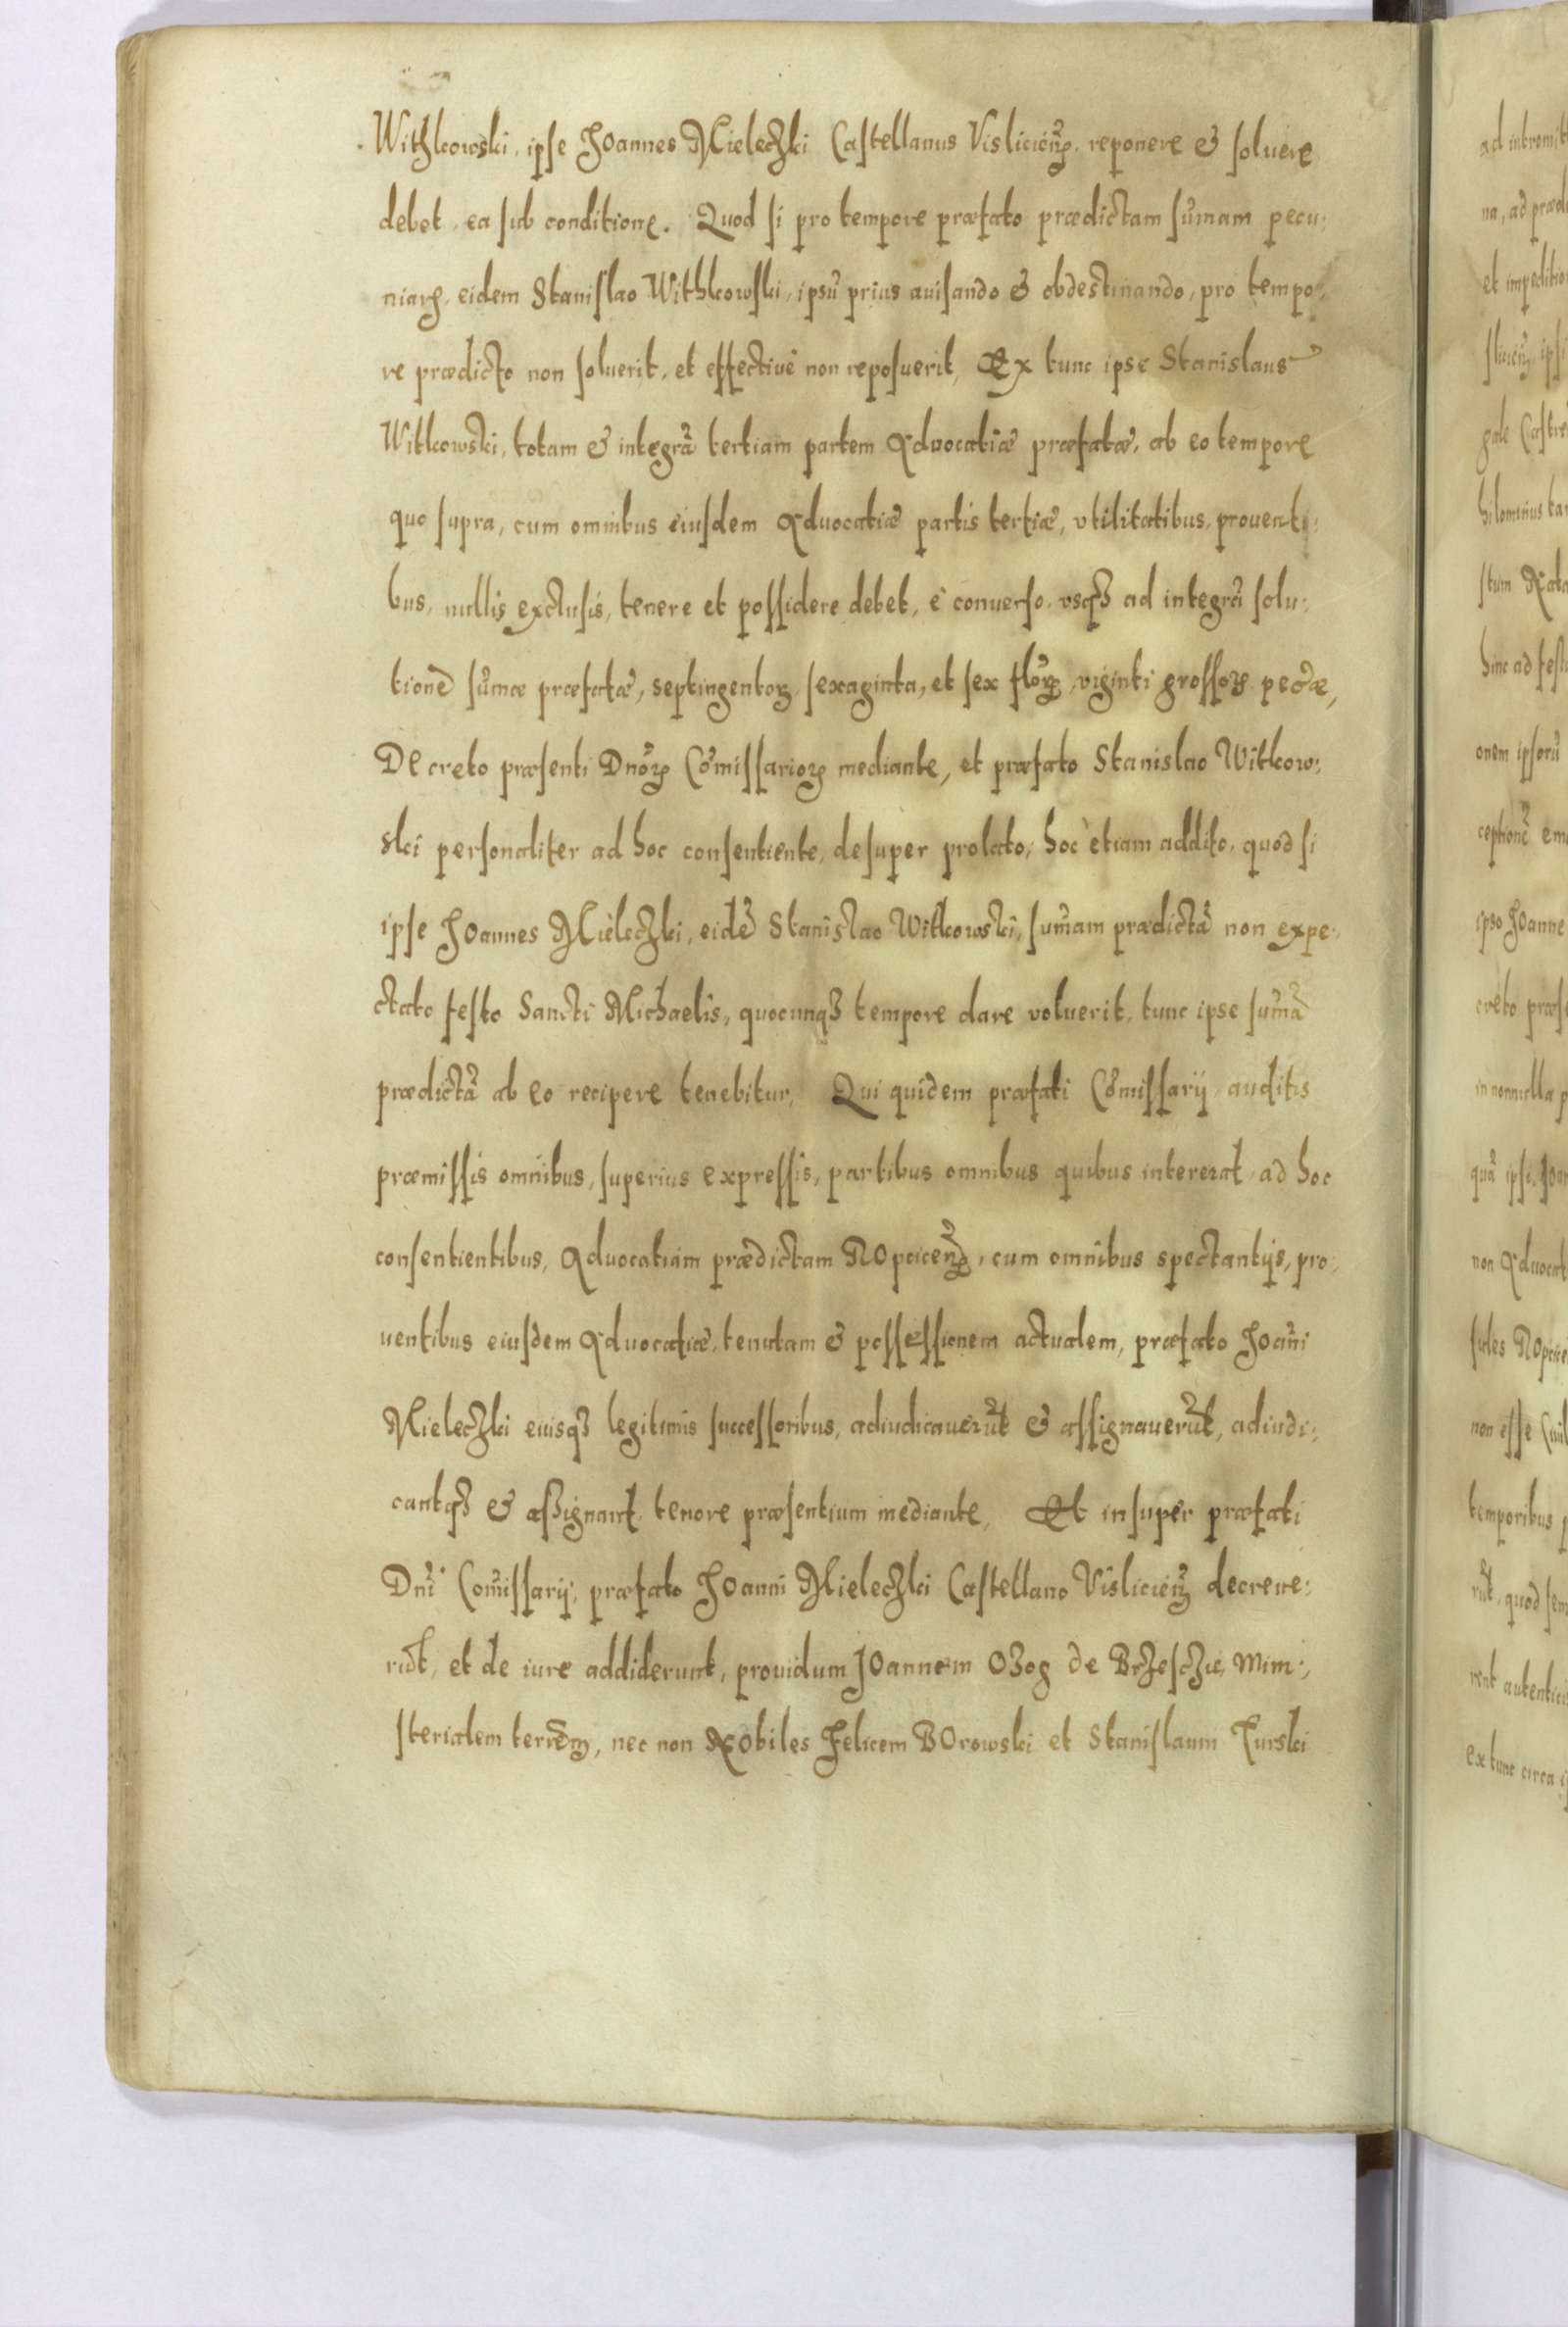 Withkowski, ipse Joannes Mieleczki Castellanus Vislicieñ, reponere & soluere
debet, ea sub conditione. Quod si pro tempore præfato prædictam sum̃am pecu:
niarꝫ, eidem Stanislao Withkowski, ipsũ prius auisando & obdestinando, pro tempo:
re prædicto non soluerit, et effectiuè non reposuerit, Ex tunc ipse Stanislaus
Witkowski, totam & integrã tertiam partem Aduocatiæ præfatæ, ab eo tempore
quo supra, cum omnibus eiusdem Aduocatiæ partis tertiæ, vtilitatibus, prouenti:
bus, nullis exclusis, tenere et possidere debet, è conuerso, vsqꝫ ad integrã solu:
tionẽ sum̃æ præfatæ, septingentoꝝ, sexaginta, et sex floꝝ, viginti grossoꝝ pecũæ,
Decreto præsenti Dnõꝝ Com̃issarioꝝ mediante, et præfato Stanislao Witkow:
ski personaliter ad hoc consentiente, desuper prolato, hoc etiam addito, quod si
ipse Joannes Mieleczki, eidẽ Stanislao Witkowski, sum̃am prædictã non expe:
ctato festo Sancti Michaelis, quocunqꝫ tempore dare voluerit, tunc ipse sum̃ã
prædictã ab eo recipere tenebitur, Qui quidem præfati Com̃issarij auditis
præmissis omnibus, superius expressis, partibus omnibus quibus intererat, ad hoc
consentientibus, Aduocatiam prædictam Ropcicen̄, cum omnibus spectantijs, pro:
uentibus eiusdem Aduocatiæ, tenutam & possessionem actualem, præfato Joañi
Mieleczki eiusqꝫ legitimis successoribus, adiudicauerũt & assignauerũt, adiudi:
cantqꝫ & aßignant, tenore præsentium mediante, Et insuper præfati
Dnĩ Com̃issarij, præfato Joanni Mieleczki Castellano Vislicień decreue:
rũt, et de iure addiderunt, prouidum Joannem Ozog de Brzesczie, Mini:
sterialem terreñ, nec non Nobiles Felicem Borowski et Stanislaum Turski